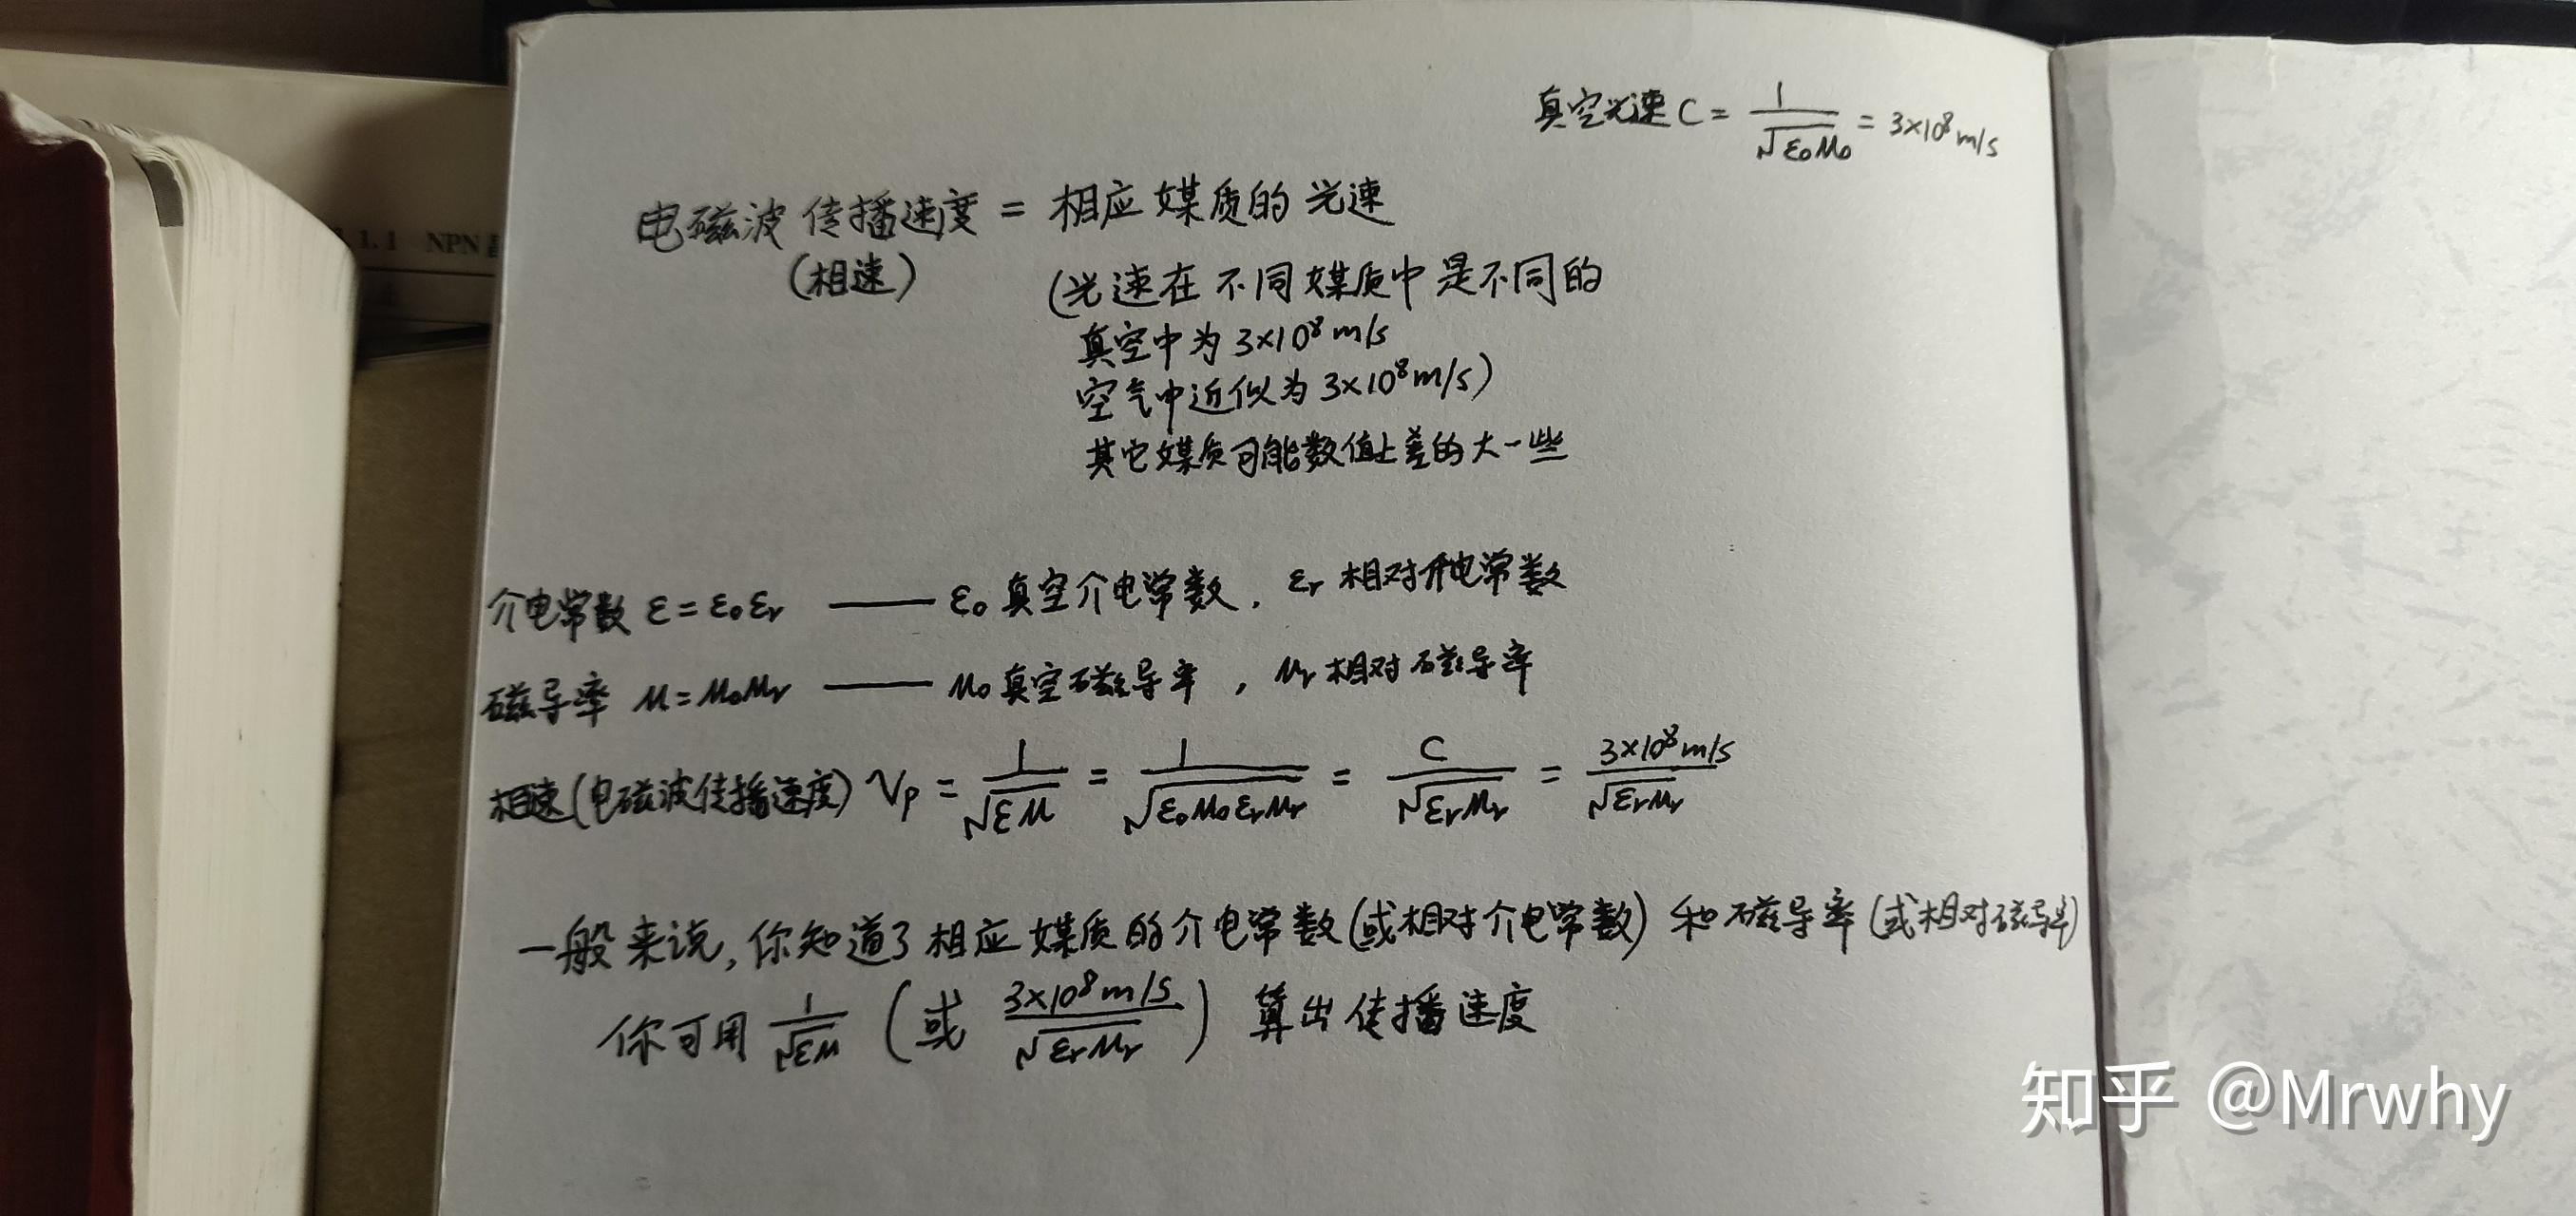 真空光速 C = 1/√ε₀μ₀ = 3×10⁸ m/s
电磁波传播速度 = 相应媒质的光速
(相速)
(光速在不同媒质中是不同的
真空中为 3×10⁸ m/s
空气中近似为 3×10⁸ m/s)
其它媒质可能数值上差的大一些
1.1 NPN
介电常数 ε = ε₀εr —— ε₀ 真空介电常数, εr 相对介电常数
磁导率 μ = μ₀μr —— μ₀ 真空磁导率, μr 相对磁导率
相速(电磁波传播速度) Vp = 1/√εμ = 1/√ε₀μ₀εrμr = C/√εrμr = 3×10⁸ m/s/√εrμr
一般来说,你知道了相应媒质的介电常数(或相对介电常数)和磁导率(或相对磁导率)
你可用 1/√εμ (或 3×10⁸ m/s/√εrμr) 算出传播速度
知乎 @Mrwhy